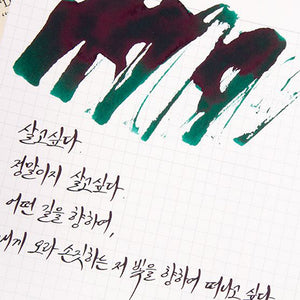 살고싶다.
정말이지 살고싶다.
어떤 길을 향하여,
오라 손짓하는 저 빛을 향하여 떠나고 싶다